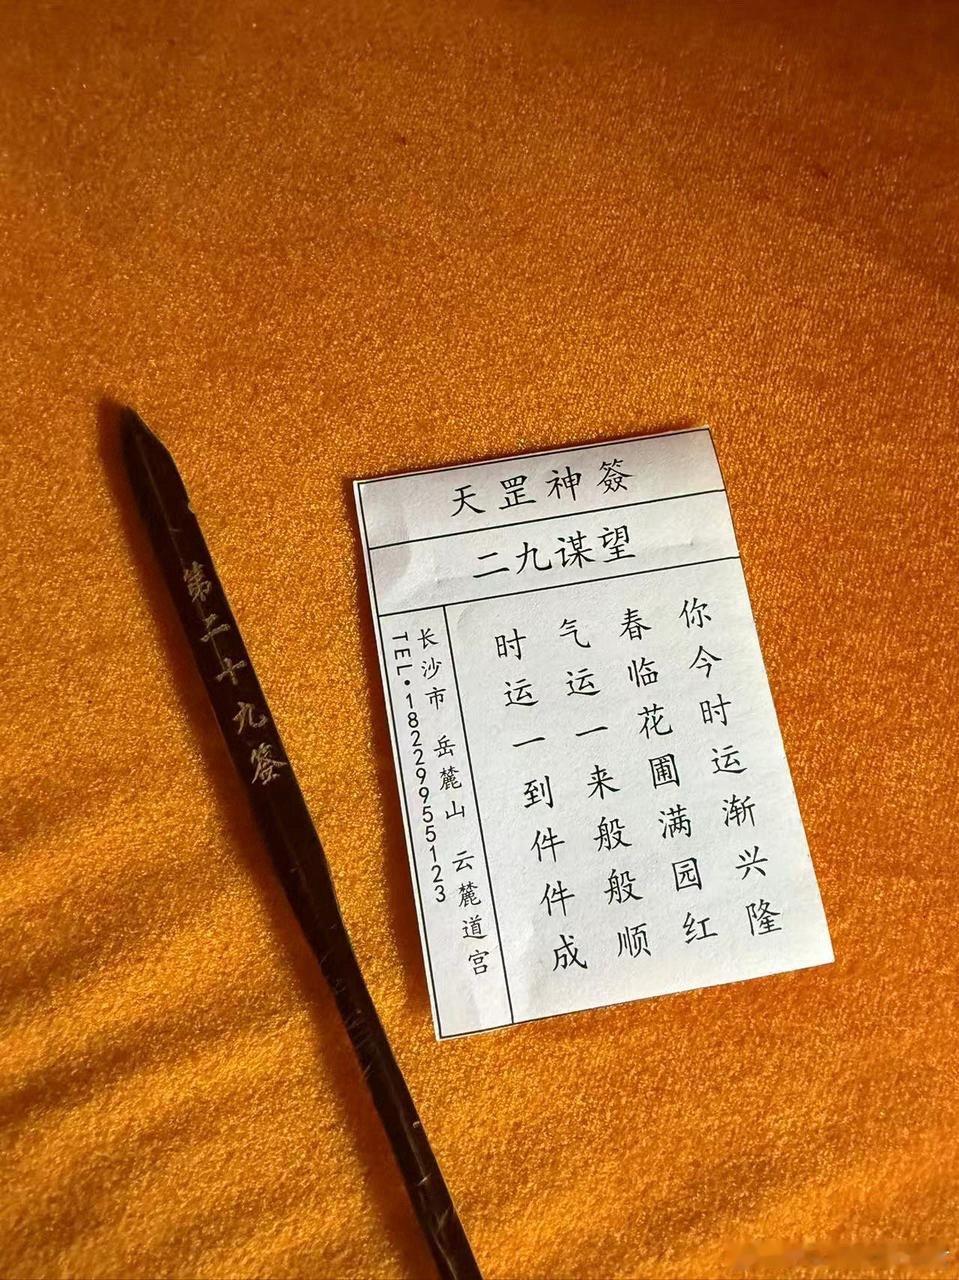 天罡神簽
二九谋望
你今时运渐兴隆
春临花圃满园红
气运一来般般顺
时运一到件件成
长沙市 岳麓山 云麓道宫
TEL·18229955123
第二十九签